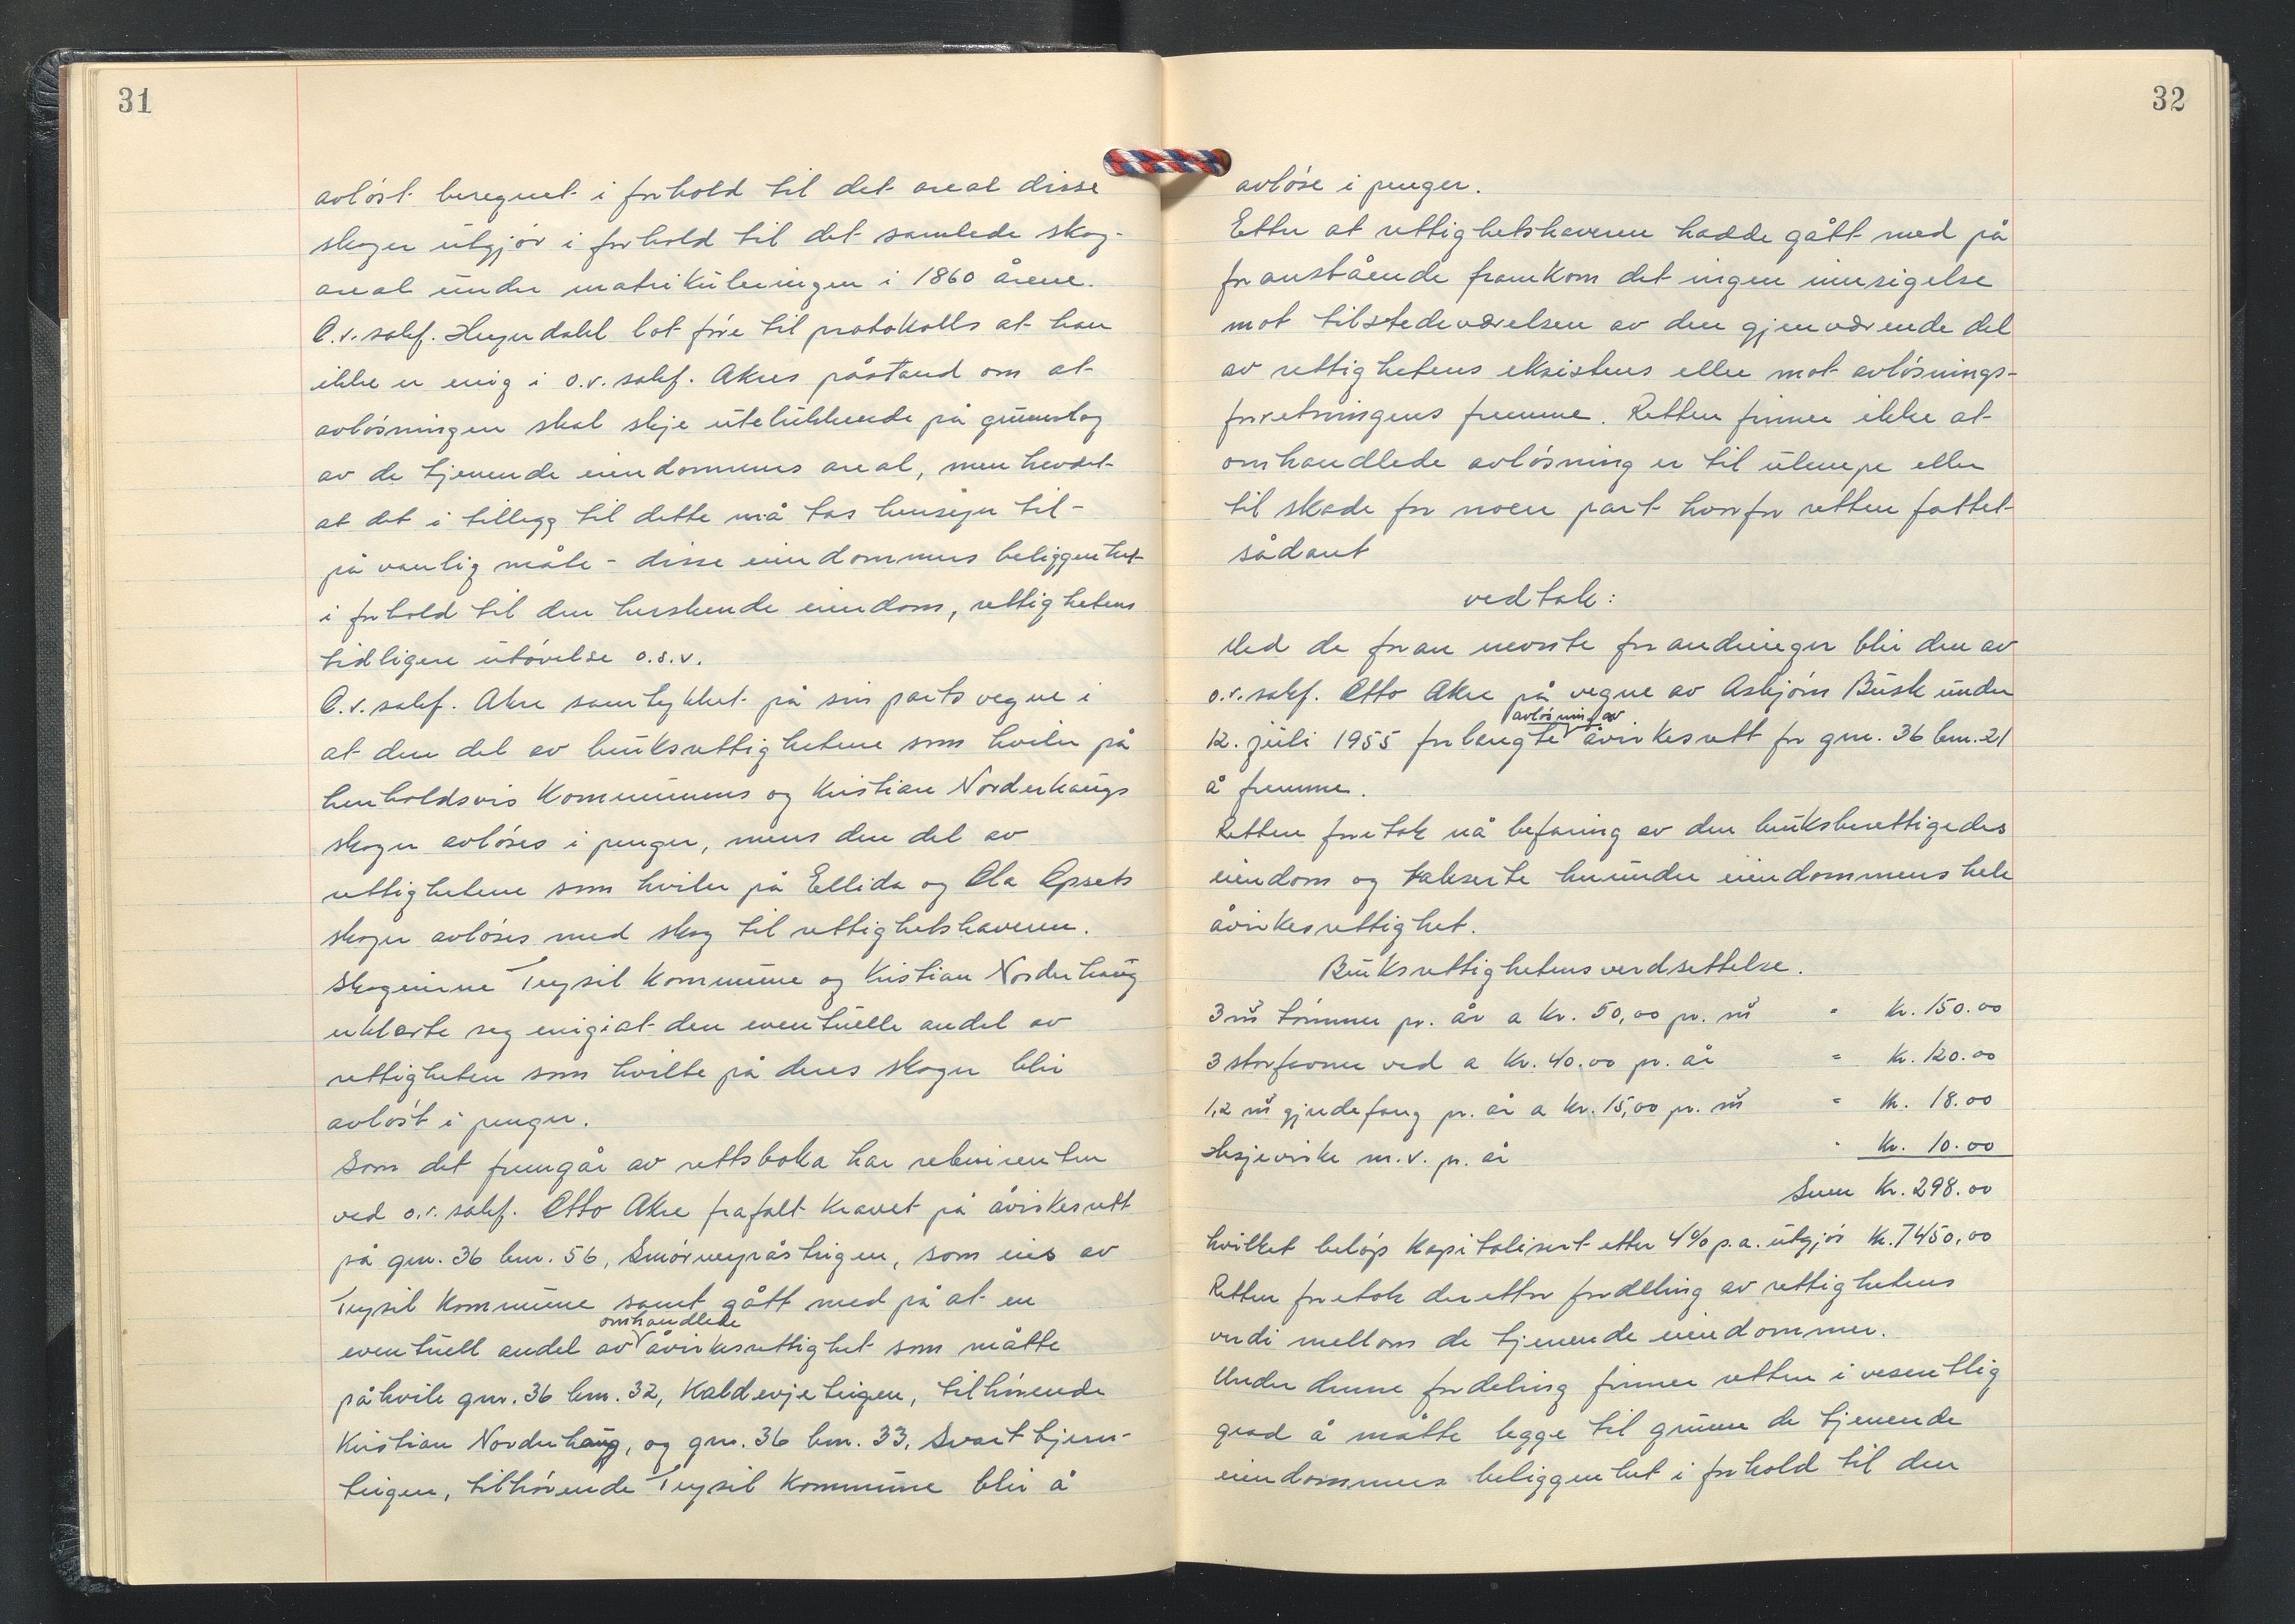 31
avløst beregnet i forhold til det areal disse
skoger utgjør i forhold til det samlede skog-
areal under matrikuleringen i 1860 årene.
O.r. sakf. Heyerdahl lot føre til protokolls at han
ikke er enig i o.r. sakf. Akres påstand om at
avløsningen skal skje utelukkende på grunnlag
av de tjenende eiendommers areal, men hevdet
at det i tillegg til dette må tas hensyn til -
på vanlig måte - disse eiendommers beliggenhet
i forhold til den herskende eiendom, rettighetens
tidligere utøvelse o.s.v.
O.r. sakf. Akre samtykket på sin parts vegne i
at den del av bruksrettighetene som hviler på
henholdsvis Kommunens og Kristian Norderhaugs
skoger avløses i penger, mens den del av
rettighetene som hviler på Ellida og Ola Opsets
skoger avløses med skog til rettighetshaveren.
Skogeierne Trysil Kommune og Kristian Norderhaug
erklærte seg enig i at den eventuelle andel av
rettigheten som hvilte på deres skoger blir
avløst i penger.
Som det fremgår av rettsboka har rekvirenten
ved o.r. sakf. Otto Akre frafalt kravet på åvirkesrett
på gnr. 36 bnr. 56, Smørmyråsteigen, som eies av
Trysil Kommune samt gått med på at en
eventuell andel av omhandlede åvirkesrettighet som måtte
påhvile gnr. 36 bnr. 32, Kaldevjeteigen, tilhørende
Kristian Norderhaug, og gnr. 36 bnr. 33, Svarttjern-
teigen, tilhørende Trysil Kommune blir å
32
avløse i penger.
Etter at rettighetshaveren hadde gått med på
foranstående framkom det ingen innsigelse
mot tilstedeværelsen av den gjenværende del
av rettighetens eksistens eller mot avløsnings-
forretningens fremme. Retten finner ikke at
omhandlede avløsning er til ulempe eller
til skade for noen part hvorfor retten fattet
sådant
vedtak:
Med de foran nevnte forandringer blir den av
o.r. sakf. Otto Akre på vegne av Asbjørn Busk under
12. juli 1955 forlangte avløsning av åvirkesrett for gnr. 36 bnr. 21
å fremme.
Retten foretok nå befaring av den bruksberettigedes
eiendom og takserte herunder eiendommens hele
åvirkesrettighet.
Bruksrettighetens verdsettelse.
3 m³ tømmer pr. år a kr. 50,00 pr. m³ = kr. 150.00
3 storfavner ved a kr. 40.00 pr. år = kr. 120.00
1,2 m³ gjerdefang pr. år a kr. 15,00 pr. m³ = kr. 18.00
Hesjevirke m.v. pr. år = kr. 10.00
Sum kr. 298.00
hvilket beløp kapitalisert etter 4% p.a. utgjør kr. 7450,00
Retten foretok deretter fordeling av rettighetens
verdi mellom de tjenende eiendommer.
Under denne fordeling finner retten i vesentlig
grad å måtte legge til grunn de tjenende
eiendommers beliggenhet i forhold til den